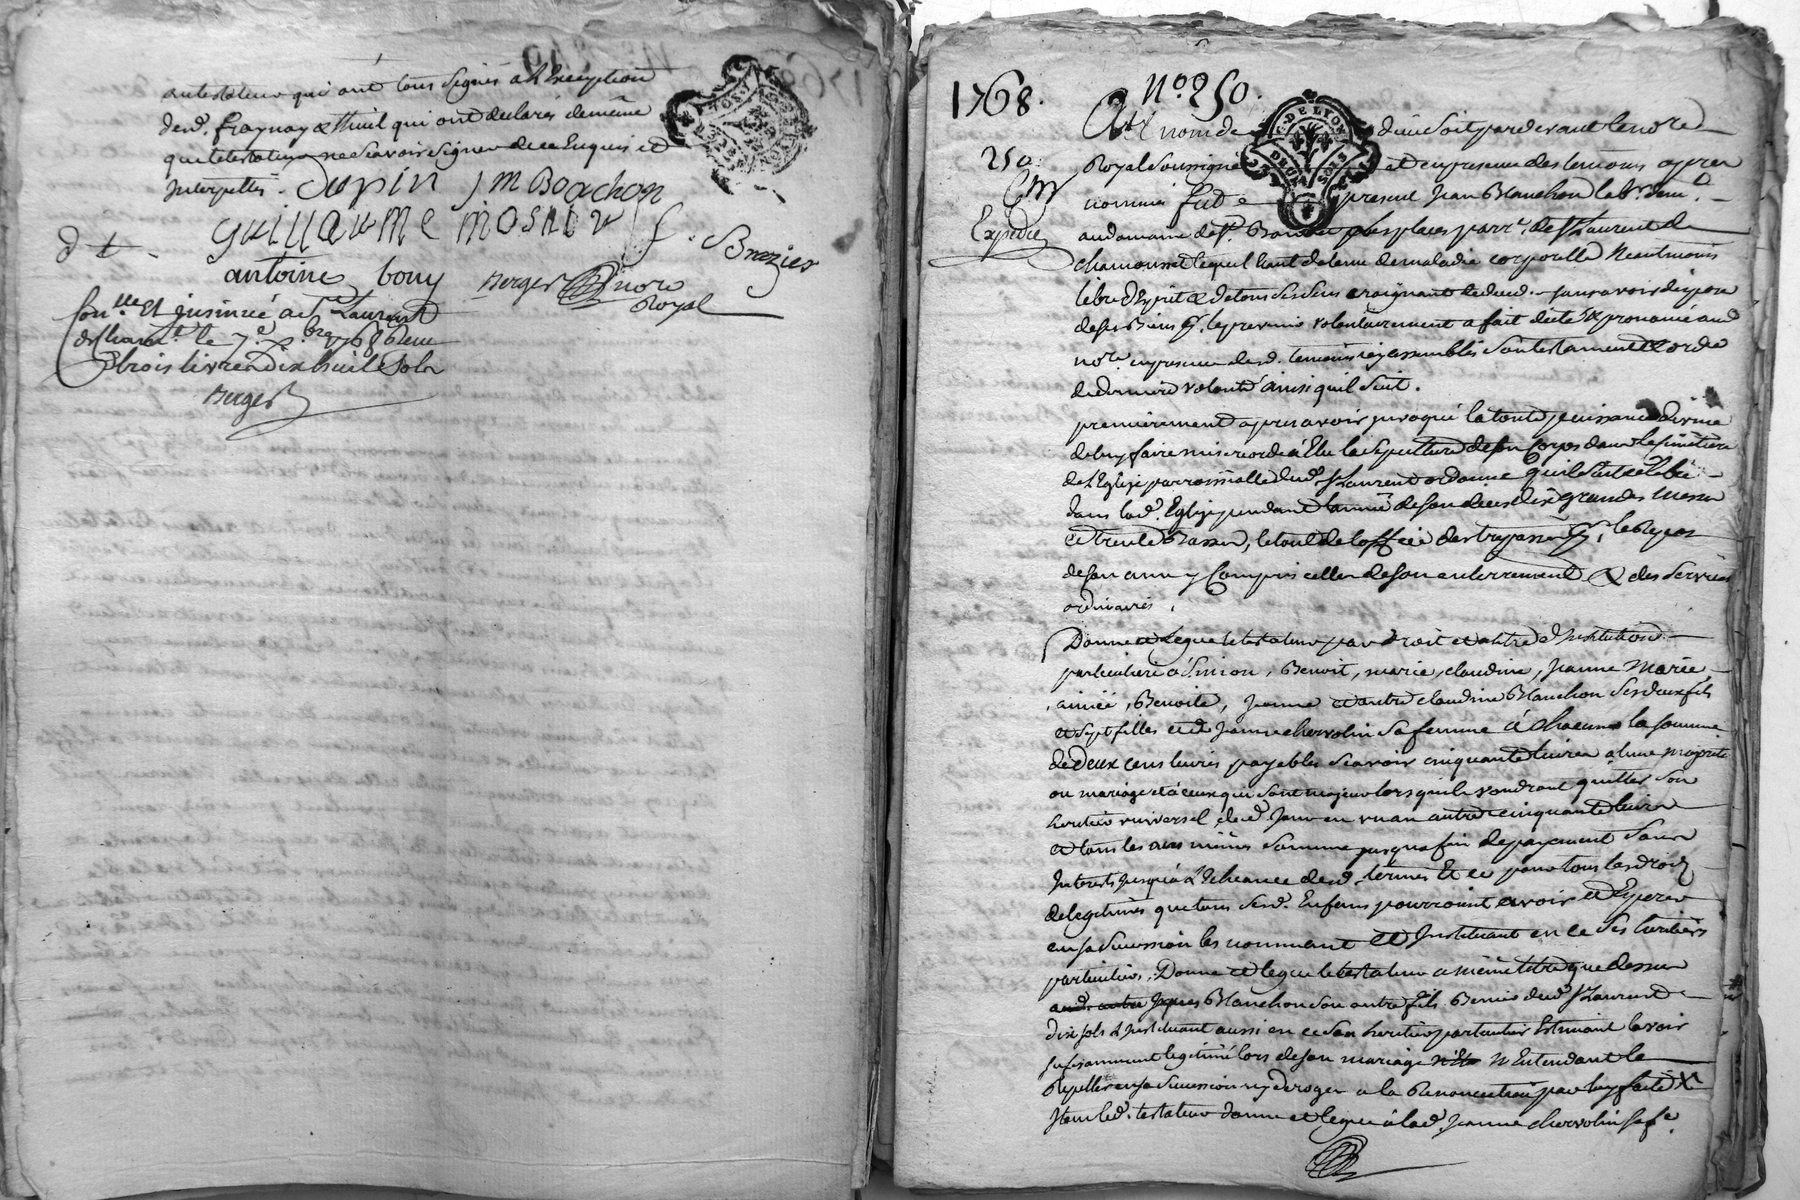 autestateur qui ont tous signés a l'Exception
desd. fraynay & thuil qui ont declarés de même
que le testateur ne scavoir signer de ce Enquis et
Interpellés. Dupin J m Boachon
guillaume mosnier f. Brazier
antoine bouy Berger nore
Royal
Con.lle et insinué a St Laurent
de Cham.t le 7.e 1768
trois livres dix huit sols
Berger
1768. No. 250.
Au nom de DE LYON dieu soit pardevant le notre
250. Royal soussigné DEUX SOLS et en presence des temoins apres
nommés fut present Jean Blanchon lab.r dem.t
Expédié au domaine de parr.e de St Laurent de
chamousset lequel etant detenu de maladie corporelle Neantmoins
libre d'Esprit & de tous ses sens craignant le deced. sans avoir disposé
de ses Biens volontairement a fait dicté & prononcé aud
no.re en presence desd. temoins icy assemblés son testament & ordce
de derniere volonté ainsi quil suit.
premierement apres avoir invoqué la toute puissance divine
de luy faire misericorde a Elu la sepulture de son Corps dans le simetiere
de l'Eglise parroissialle dud. St Laurent ordonne quil soit celebré
dans lad. Eglise pendant l'année de son deces dix grandes messes
et trente Basses, le tout de l'office des trepassés le Repos
de son ame y Compris celles de son enterrement & des services
ordinaires.
Donne et legue le testateur par droit et a titre d'Institution
particuliere a Simon, Benoit, marie, claudine, Jeanne Marie,
aimée, Benoite, Jeanne et autre claudine Blanchon ses deux fils
et sept filles et a Jeanne chervolin sa femme a chacun la somme
de deux cens livres payables scavoir cinquante livres a leur majorité
ou mariage et a ceux qui sont majeurs lorsquils voudront quitter son
heritier universel, de ce Jour en un an autre cinquante livres
et tous les ans même somme jusqua fin de payement sans
Interets jusqu'a l'Echeance desd. termes Et ce pour tous les droits
de legitimes que tous sesd. Enfans pourroient avoir et Esperer
en sa succession les nommant et Instituant en ce ses heritiers
particuliers. Donne et legue le testateur a même titre que dessus
Blanchon son autre fils dud. St Laurent
dix sols l'Instituant aussi en ce son heritier particulier Estimant l'avoir
suffisamment legitimé lors de son mariage N'Entendant le
Rapeller en sa succession ny deroger a la Renonciation par luy faite
Item led. testateur donne et legue a lad. Jeanne chervolin sa fe.